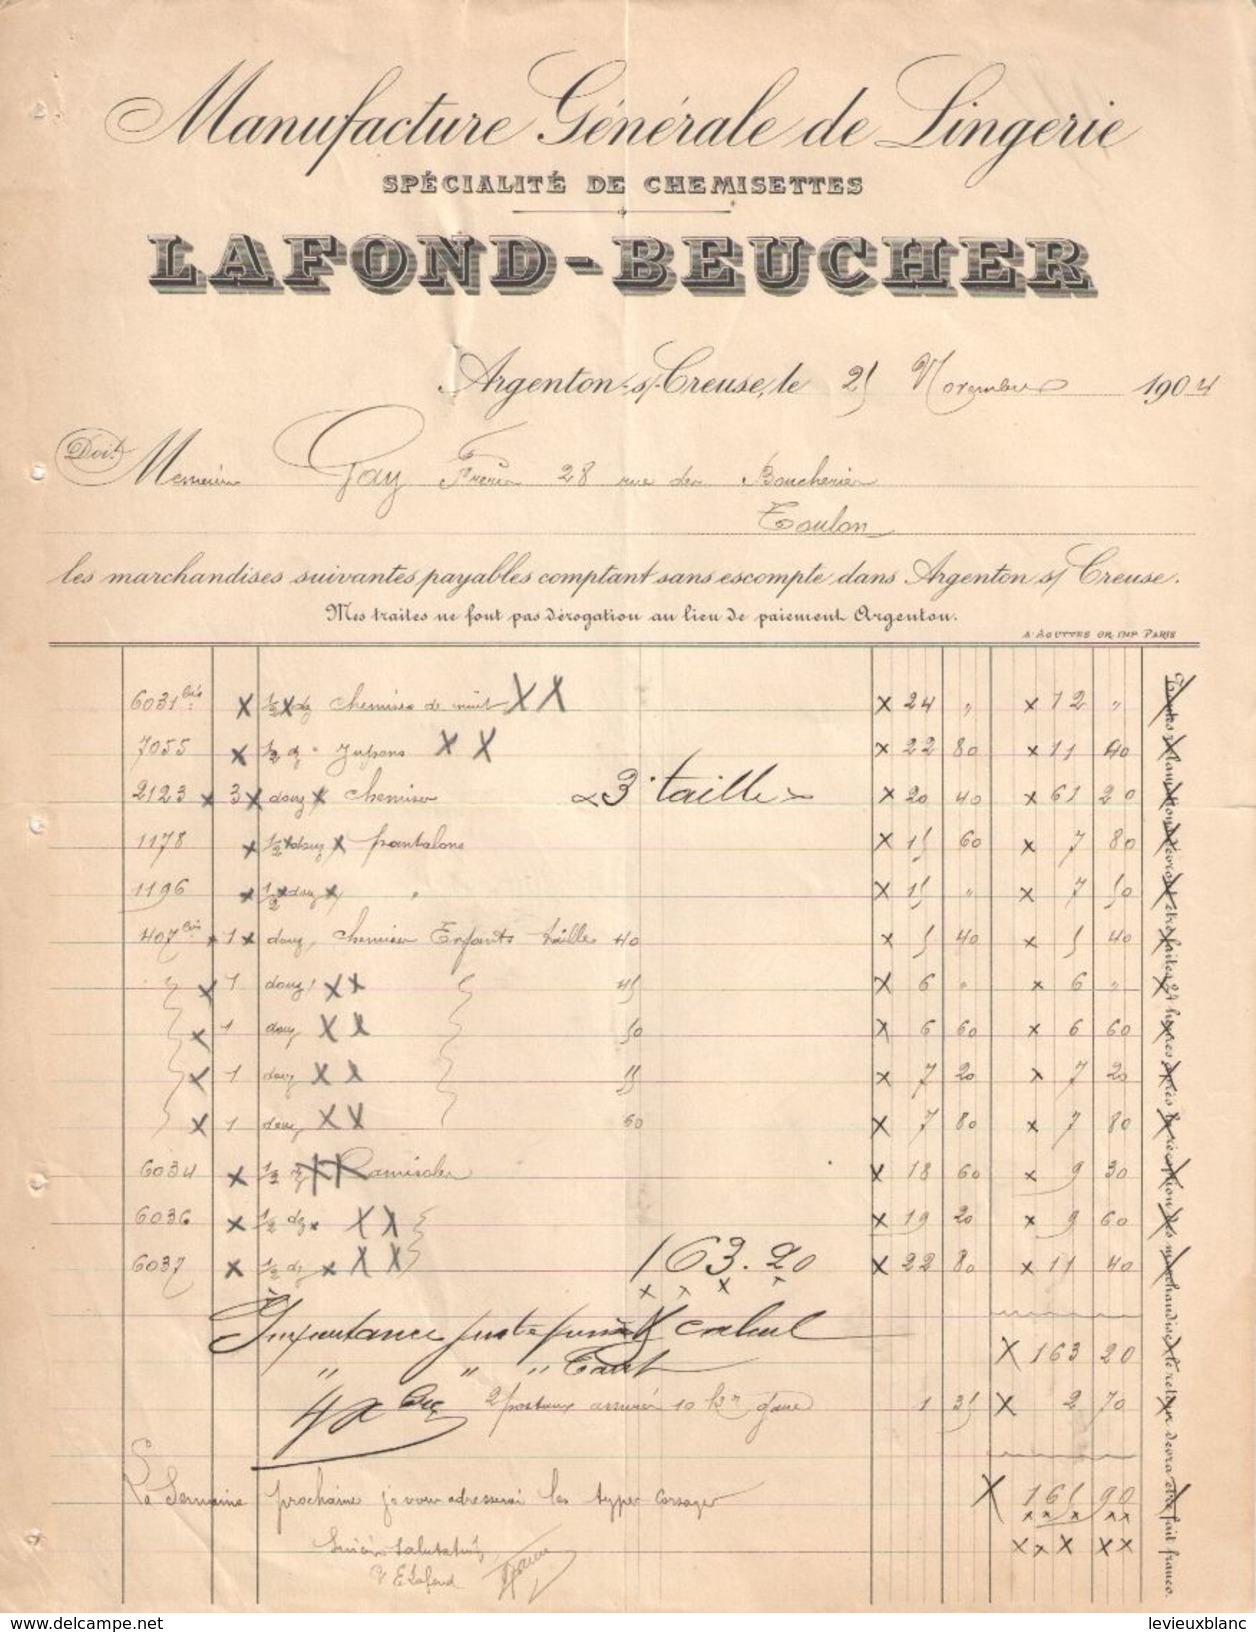 Manufacture Générale de Lingerie
SPÉCIALITÉ DE CHEMISETTES
LAFOND-BEUCHER
Argenton-s/-Creuse, le 25 Novembre 1904
Doit Messieurs Gay Frères 28 rue des Boucheries
Toulon
les marchandises suivantes payables comptant sans escompte dans Argenton s/ Creuse.
Mes traites ne font pas dérogation au lieu de paiement Argenton.
A. AGUTTES GR. IMP. PARIS
6031 bis 1/2 dz chemises de nuit 24 " 12 "
7055 1/2 dz Jupons 22 80 11 40
2123 3 douz chemises 3 taille 20 40 61 20
1178 1/2 douz pantalons 15 60 7 80
1196 1/2 douz " 15 " 7 50
407 bis 1 douz chemises Enfants taille 40 5 40 5 40
1 douz 45 6 " 6 "
1 douz 50 6 60 6 60
1 douz 55 7 20 7 20
1 douz 60 7 80 7 80
6034 1/2 dz Camisoles 18 60 9 30
6036 1/2 dz 19 20 9 60
6037 1/2 dz 163.20 22 80 11 40
Importance juste calcul 163 20
" " " Tarif
2 postaux assurés 10 k gare 1 35 2 70
La Semaine prochaine je vous adresserai les types corsages 165 90
Sincères Salutations
P E Lafond
Toutes réclamations devront être faites 24 heures après la réception des marchandises, le retour devra être fait franco.
levieuxblanc